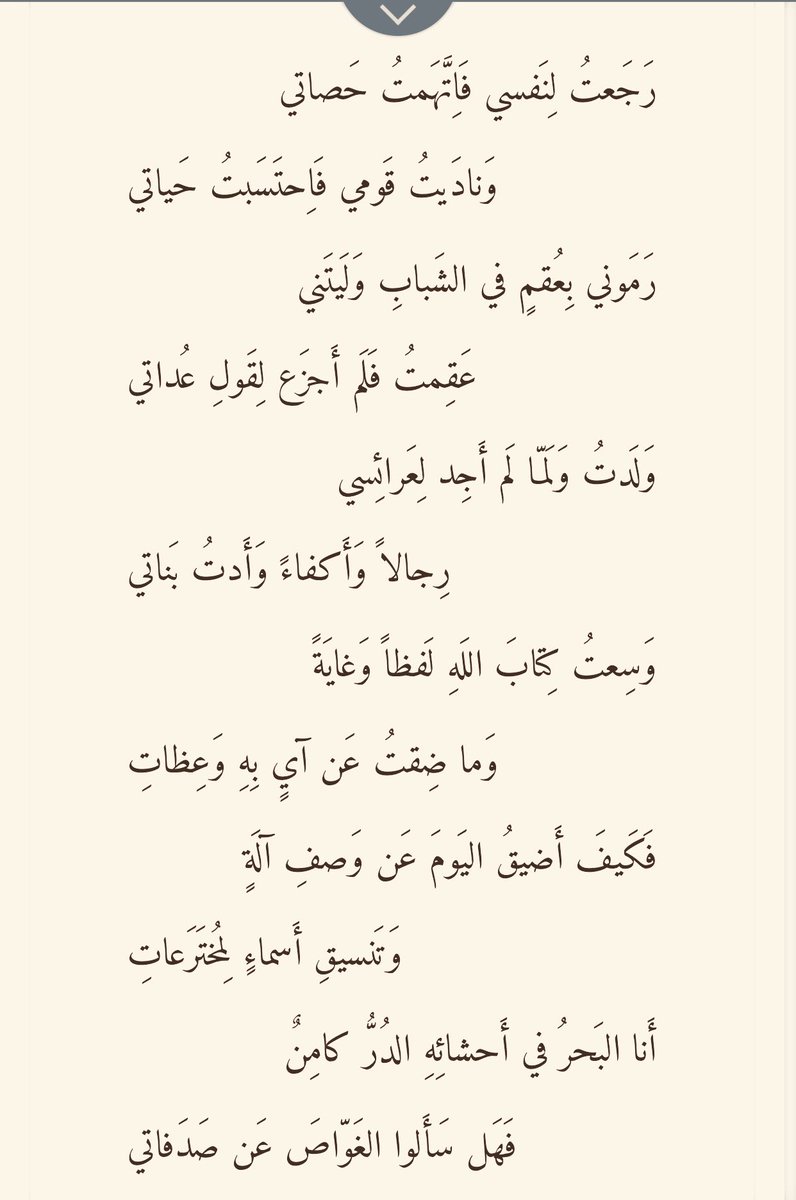 رَجَعتُ لِنَفسي فَاِتَّهَمتُ حَصاتي
وَنادَيتُ قَومي فَاِحتَسَبتُ حَياتي
رَمَوني بِعُقمٍ في الشَبابِ وَلَيتَني
عَقِمتُ فَلَم أَجزَع لِقَولِ عُداتي
وَلَدتُ وَلَمّا لَم أَجِد لِعَرائِسي
رِجالاً وَأَكفاءً وَأَدتُ بَناتي
وَسِعتُ كِتابَ اللَهِ لَفظاً وَغايَةً
وَما ضِقتُ عَن آيٍ بِهِ وَعِظاتِ
فَكَيفَ أَضيقُ اليَومَ عَن وَصفِ آلَةٍ
وَتَنسيقِ أَسماءٍ لِمُختَرَعاتِ
أَنا البَحرُ في أَحشائِهِ الدُرُّ كامِنٌ
فَهَل سَأَلوا الغَوّاصَ عَن صَدَفاتي